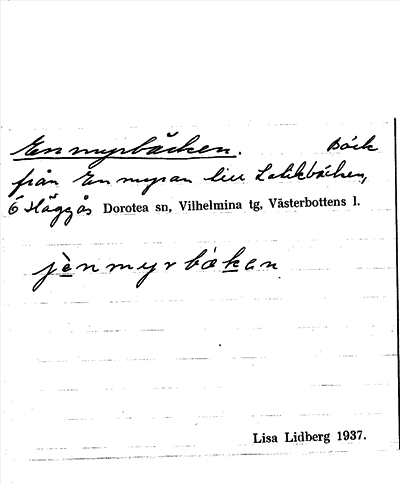 Enmyrbäcken. Bäck
från Enmyran till Latikbäcken,
Ö Häggås Dorotea sn, Vilhelmina tg, Västerbottens l.
jènmyrbäkan
Lisa Lidberg 1937.